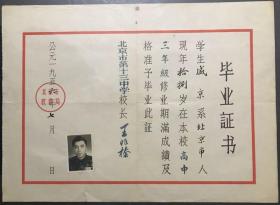 毕业证书
学生成 京系北京市人
现年拾捌岁在本校高中
三年级修业期满成绩及
格准予毕业此证
北京市第十三中学校长
公元一九五 年七月 日